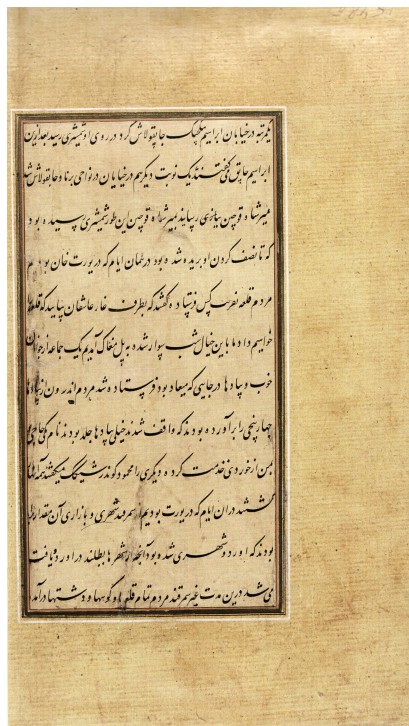 یکمرتبه در خیابان ابراهیم بیگچیک جابقولاش کرد در روی او شمشیری رسید بعد ازین
ابراهیم چاپق می گفتند یک نوبت دیگر هم در خیابان در نواحی برناد جابقولاش شد
بمیر شاه قوچین نیازی رسیانید بمیر شاه قوچین این طور شمشیری رسیده بود
که تا نصف گردن او بریده شده بود در همان ایام که در یورت خان بودیم
مردم قلعه نفر کس فرستاده گفتند که بطرف غار عاشقان بیایید که قلعه را
خواهیم داد ما باین خیال شب سوار شده به پل مغاک آمدیم یک جماعه از جوانان
خوب و پیادها در جایی که میعاد بود فرستاده شد مردم اندرون از پیادها
چهار پنجی را برآورده بودند که واقف شدند خیلی پیادها جلد بودند نام یکی حاجی بود
بمن از خوردی خدمت کرده دیگری را محمود کوندور سنگک میگفتند همه آنها
کشته شدند در ان ایام که در یورت بودیم از سمرقند شهری و بازاری آن مقدار برآمده
بودند که اوردو شهری شده بود آنچه از شهرها بطلبند در اوردو یافت
می شد درین مدت غیر سمرقند مردم تمام قلعه ها و کوهها و دشتها درآمدند